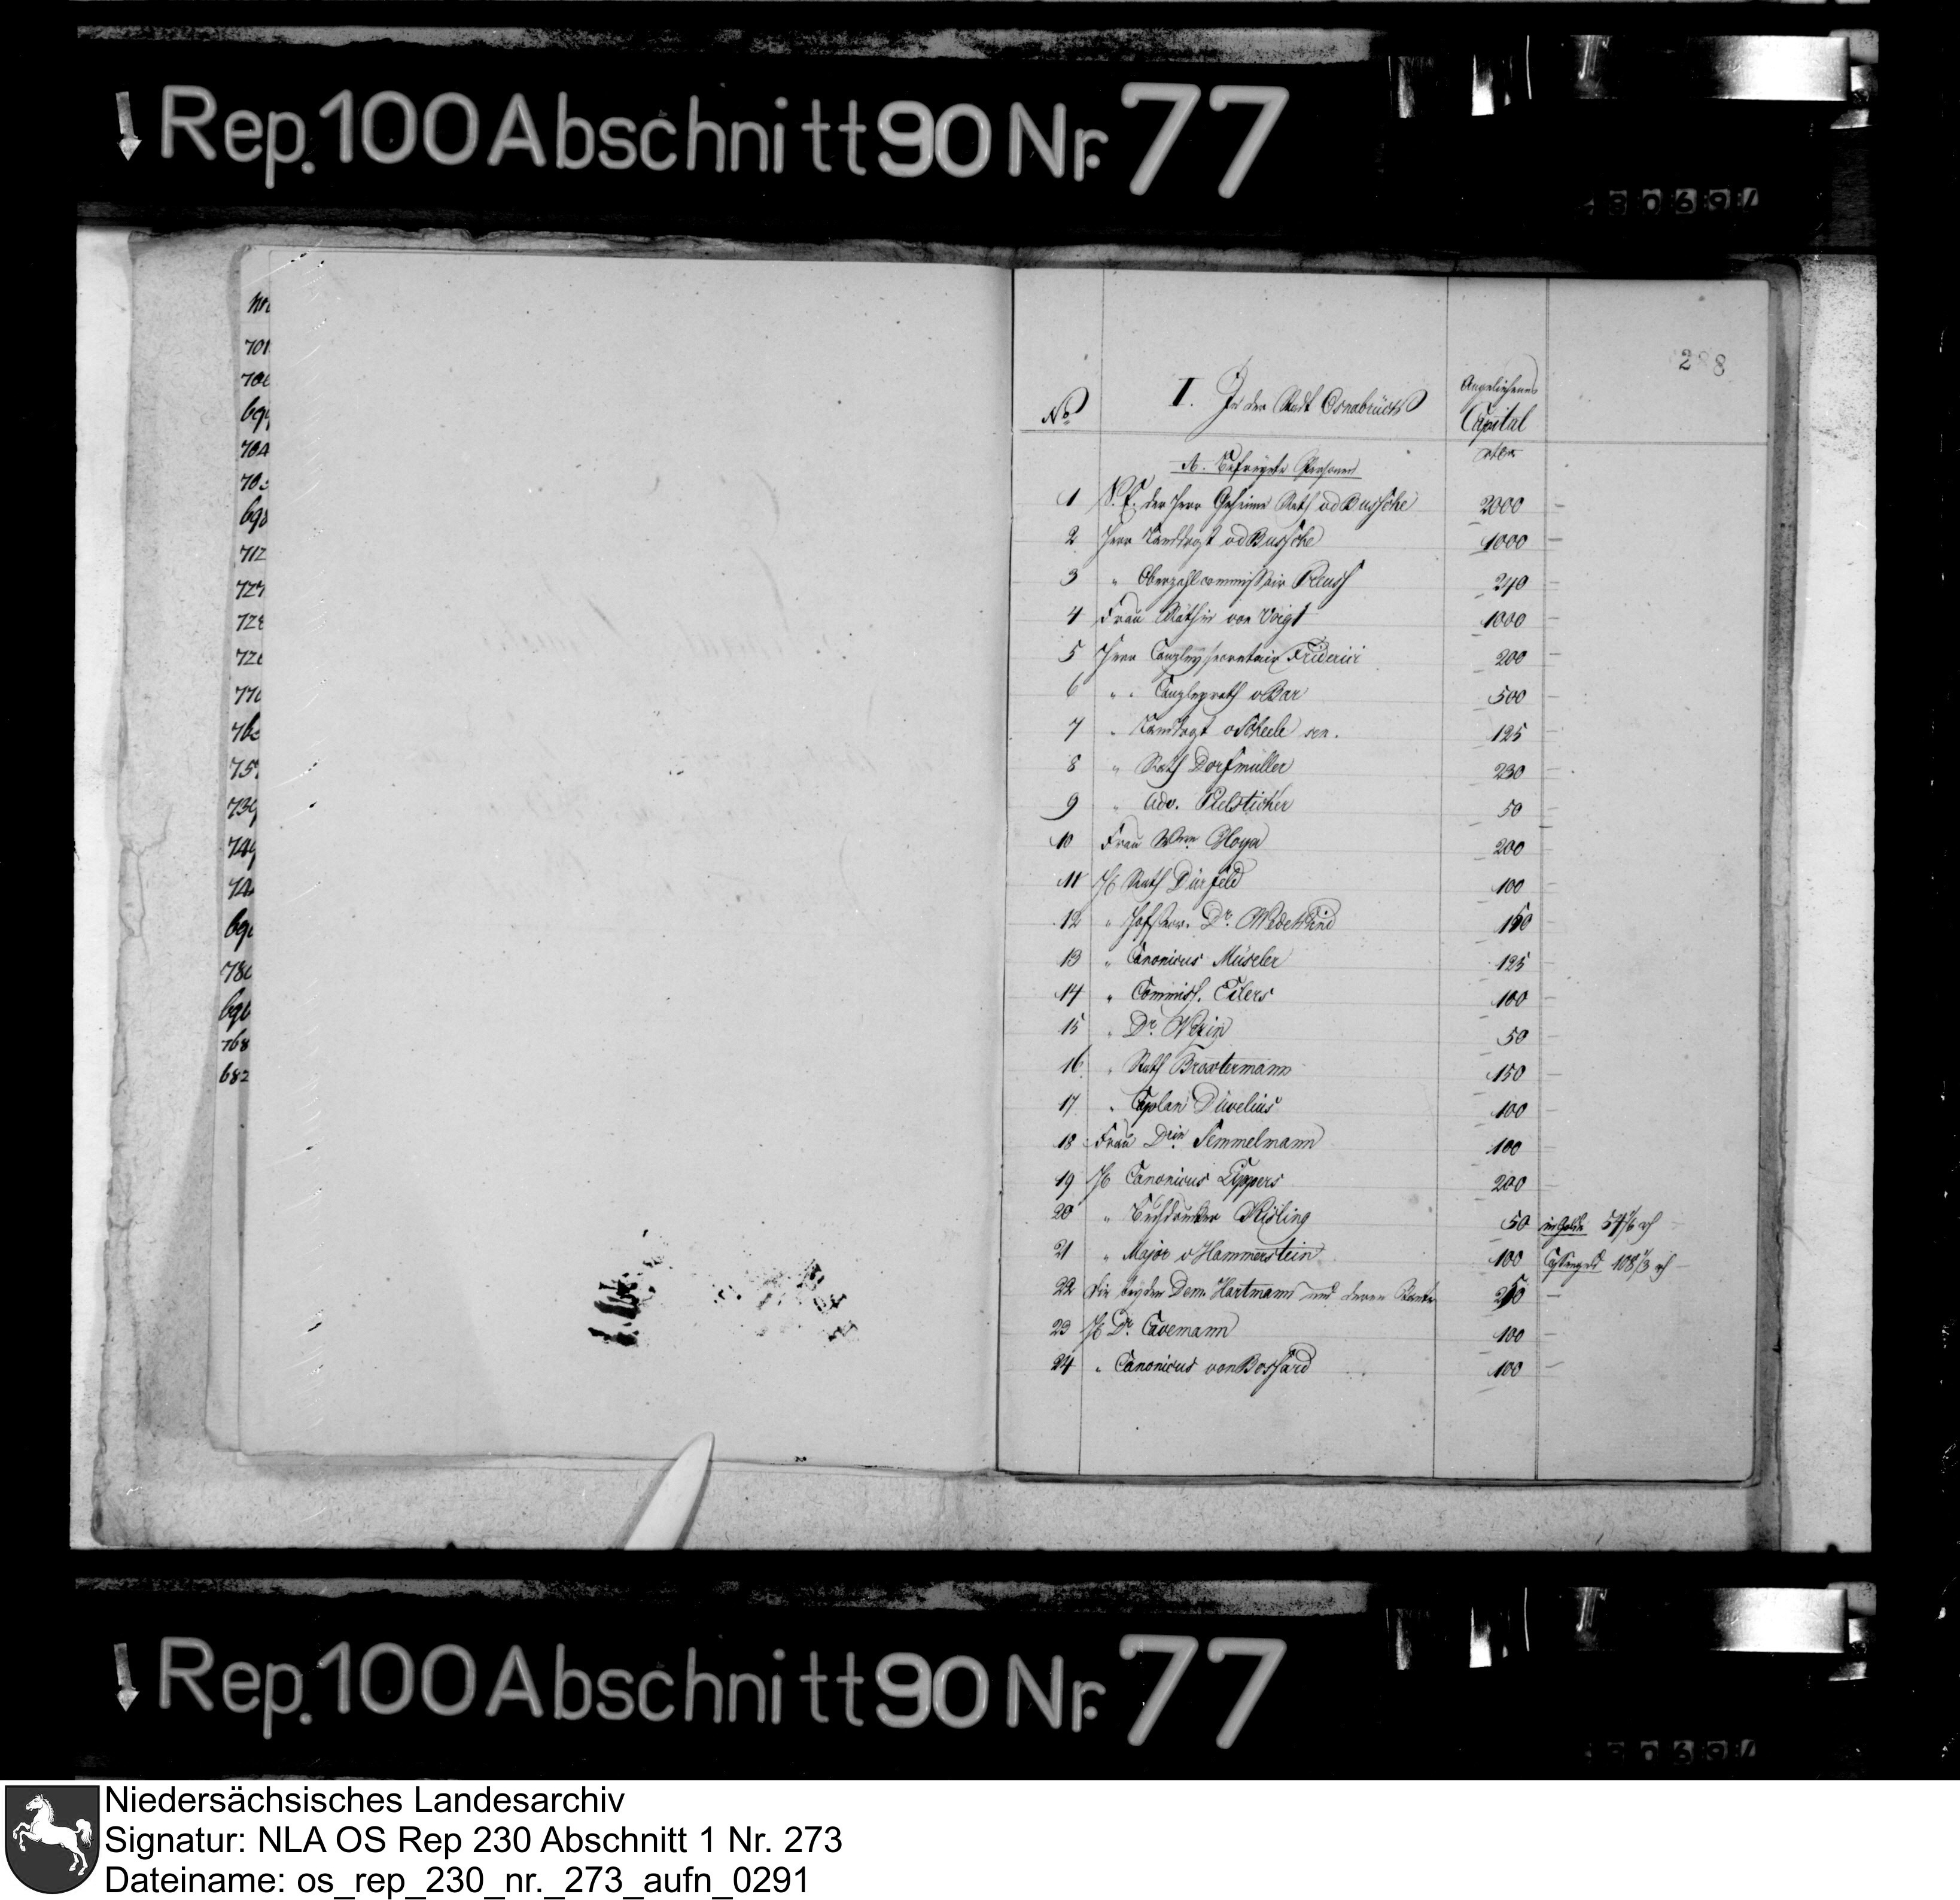 Rep. 100 Abschnitt 90 Nr. 77
701
712
768
682
288
No
I. In der Stadt Osnabrück
Angeliehenes
Capital
rthlr
A. Befreyete Personen
1 S. E. der Herr Geheime Rath vd Bussche 2000 –
2 Herr Landdrost vd Bussche 1000 –
3 " Oberzahlcommissair Preuss 240 –
4 Frau Räthin von Voigt 1000 –
5 Herr Canzleysecretair Friderici 200 –
6 " Canzleyrath v Bar 500 –
7 " Landdrost v Scheele sen. 125 –
8 " Rath Dorfmüller 230 –
9 " Adv. Pielsticker 50 –
10 Frau Wwe Hoya 200 –
11 H Rath Dürfeld 100 –
12 " Dr. Wedekind 150 –
13 " Canonicus Müseler 125 –
14 " Commiss. Eilers 100 –
15 " Dr. 50 –
16 " Rath Broxtermann 150 –
17 " Caplan Düvelius 100 –
18 Frau Drin Temmelmann 100 –
19 H Canonicus Lippers 200 –
20 " Buchdrucker Kisling 50 in Golde 54 1/6 rh
21 " Major v Hammerstein 100 108 1/3 rh
22 Die beyden Dem. Hartmann und deren Tante –
23 H Dr. Cavemann 100 –
24 " Canonicus von Bossard 100 –
Rep. 100 Abschnitt 90 Nr. 77
Niedersächsisches Landesarchiv
Signatur: NLA OS Rep 230 Abschnitt 1 Nr. 273
Dateiname: os_rep_230_nr._273_aufn_0291